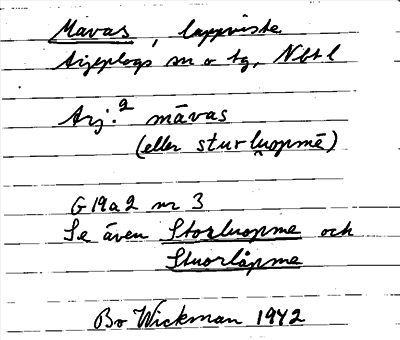 Mavas, lappviste
Arjeplogs sn o tg, Nbtl
Arj.² māvas
(eller sturluǫpmē)
G 19a2 nr 3
Se även Storluopme och
Stuorlåpme
Bo Wickman 1942